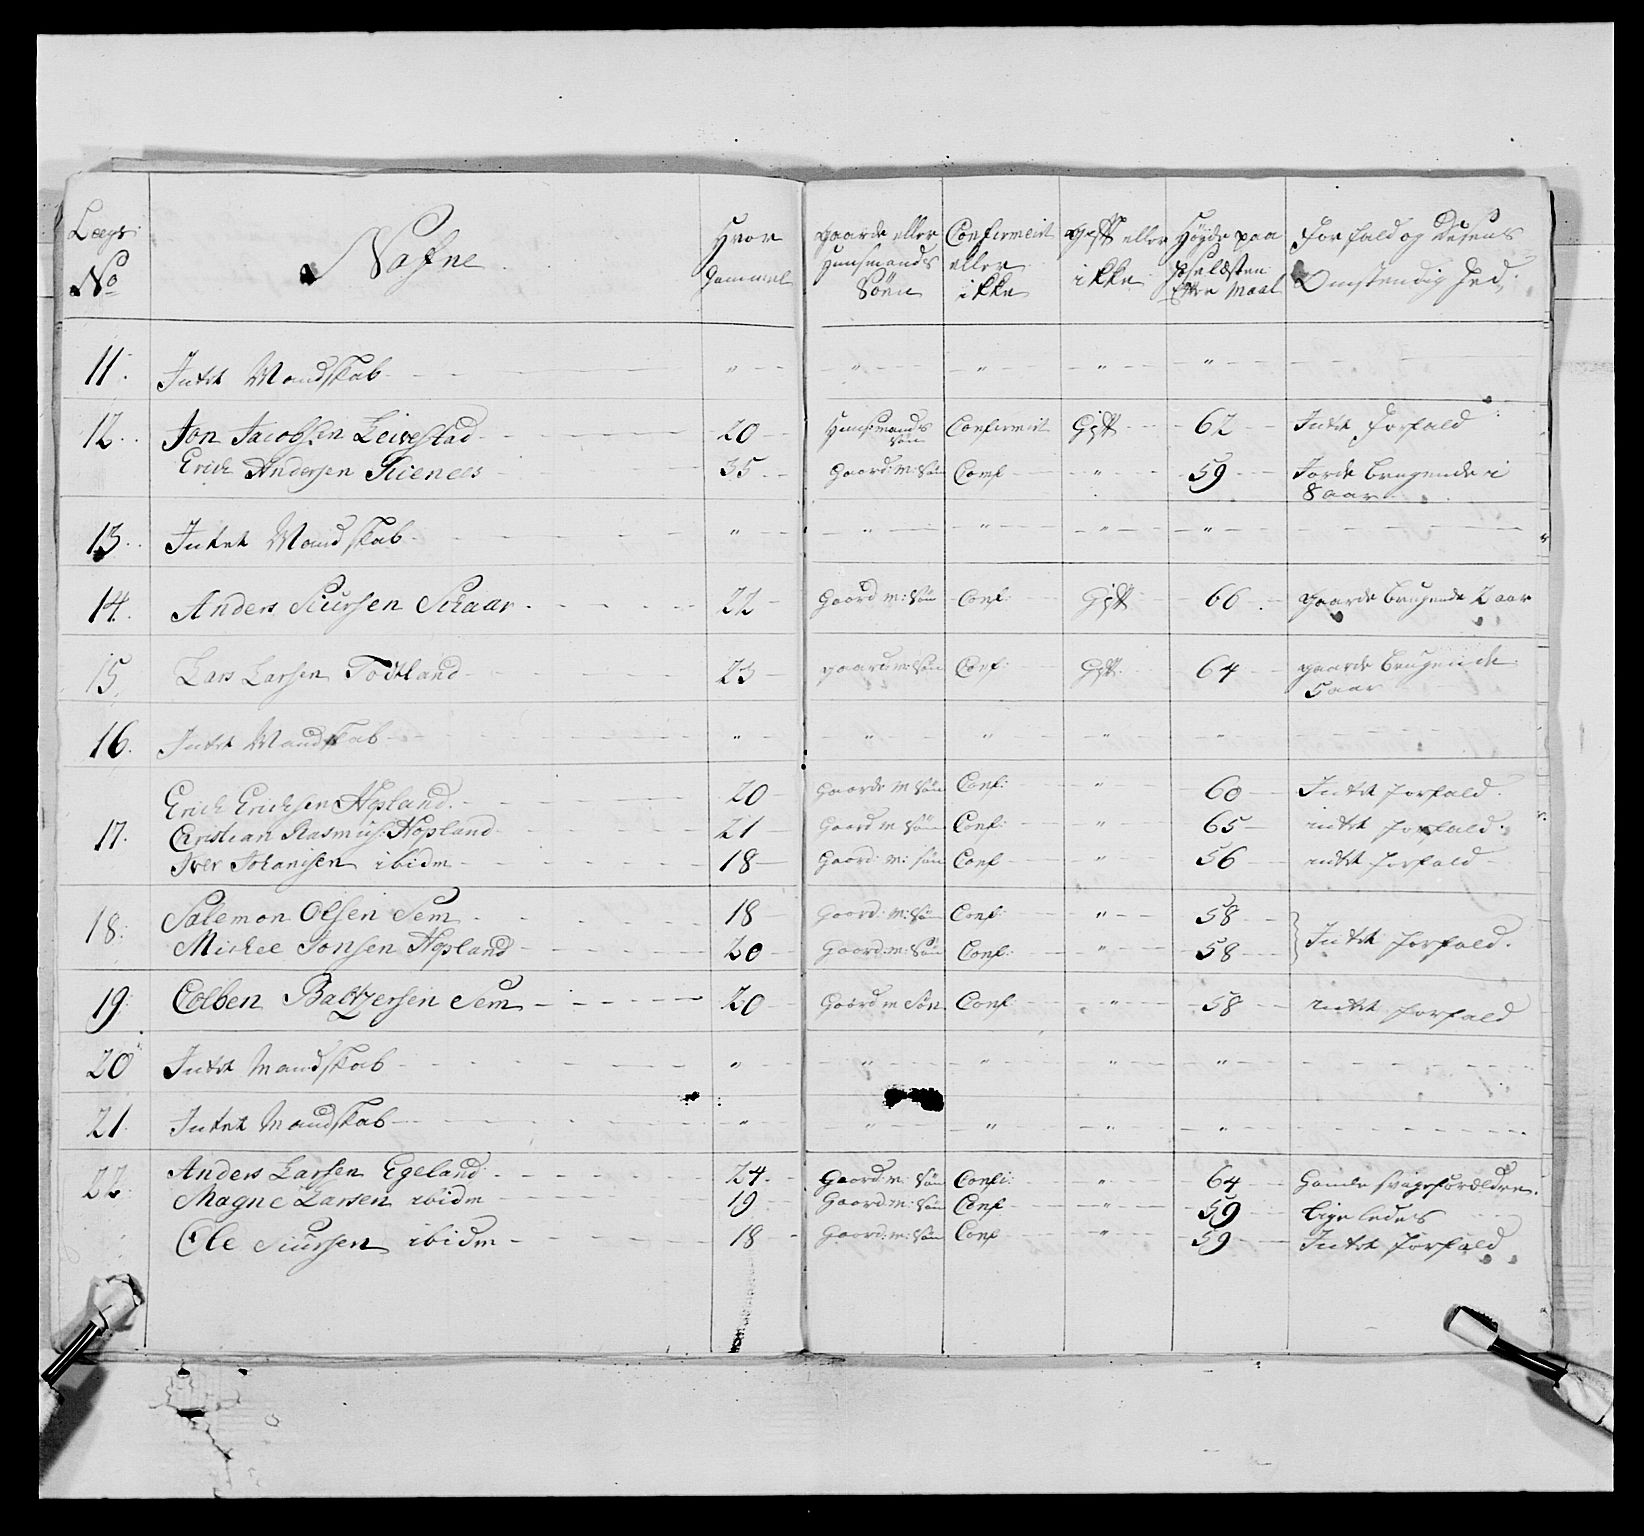 Lægs No | Nafne | Hvor Gammel | gaarde eller Huusmands Søen | Confirmeirt eller ikke | gift eller ikke | Høyde paa Maal | Forfald og Omstendighed
11. Intet Mandskab - " - " - " - " - "
12. Jon Jacobsen Leivestad - 20 - Huusmands Søn Confirmeirt Gift - 62 - Intet Forfald
Erich Andersen - 35 - Gaard: M: Søn Conf - " - 59 - Jorde brugende i
8 aar
13. Intet Mandskab - " - " - " - " - "
14. Anders Siursen Schaar - 22 - Gaard M: Søn Conf: Gift - 66 - gaarde brugende 2 aar
15. Lars Larsen Todtland - 23 - gaard M: Søn Conf: Gift - 64 - gaarde brugende
5 aar
16. Intet Mandskab - " - " - " - " - "
Erich Erichsen Hopland - 20 - Gaarde M Søn Conf: - " - 60 - Intet forfald
17. Christian Rasmus: Hopland - 21 - Gaard M Søn Conf: - " - 65 - intet forfald
Iver Johanisen ibidm - 18 - Gaard: M: søn Conf - " - 56 - intet forfald
18. Salemon Olsen Sem - 18 - Gaard: M: Søn Conf: - " - 58
Mickel Jonsen Hopland - 20 - Gaard: M: Søn Conf: - " - 58 - Intet forfald.
19. Colben Baltzersen Sem - 20 - Gaard M Søn Conf: - " - 58 - intet forfald
20 Intet Mandskab - " - " - " - " - "
21. Intet Mandskab - " - " - " - " - "
22. Anders Larsen Egeland - 24 - Gaard: M: Søn Conf: - " - 64 - Gamle svage forældre.
Magne Larsen ibidm - 19 - Gaard: M: Søn Conf - " - 59 - ligeledes
Ole Siursen ibidm - 18 - Gaard: M: Søn Conf - " - 59 - Intet forfald